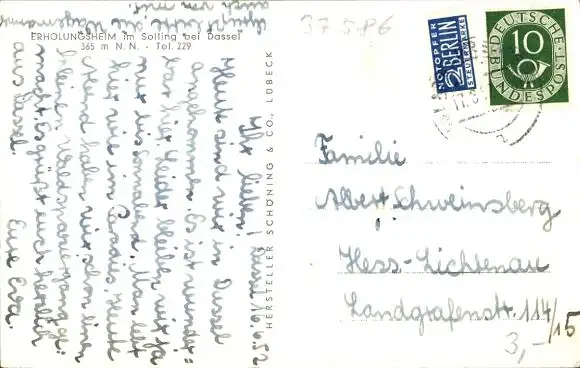 37586
ERHOLUNGSHEIM im Solling bei Dassel
365 m N. N. - Tel. 229
Dassel, 16.6.52
Ihr Lieben!
Heute sind wir in Dassel
angekommen. Es ist wunder=
bar hier. Leider bleiben wir ja
nur bis Sonnabend. Man lebt
hier wie im Paradies. Heute
Abend haben wir schon einen
kleinen Waldspaziergang ge=
macht. Es grüßt euch herzlich
aus Dassel Eure Eva.
auch von mir.
HERSTELLER SCHÖNING & CO., LÜBECK
NOTOPFER
2 BERLIN
STEUERMARKE
DEUTSCHE
10
BUNDESPOST
Familie
Albert Schweinsberg
Hess-Lichtenau
Landgrafenstr. 114/15
3,-